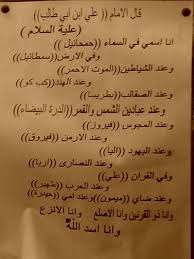 قال الامام (( علي ابن ابي طالب))
(علية السلام )
انا اسمي في السماء ((حمحائيل))
وفي الارض((سمطائيل))
وعند الشياطين((الموت الاحمر))
وعند الهند((كب كو))
وعند الصقالب((بطريسا))
وعند عبادين الشمس والقمر((الدرة البيضاء))
وعند المجوس ((فيروز))
وعند الارمن ((فيروق))
وعند اليهود ((اليا))
وعند النصارى ((اريا))
وفي القران ((علي))
وعند العرب ((ظهير))
وعند ضاي ((ميمون))وعند امي ((حيدرة))
وانا ذو القرنين وانا الاصلع وانا الانزع
وانا اسد الله